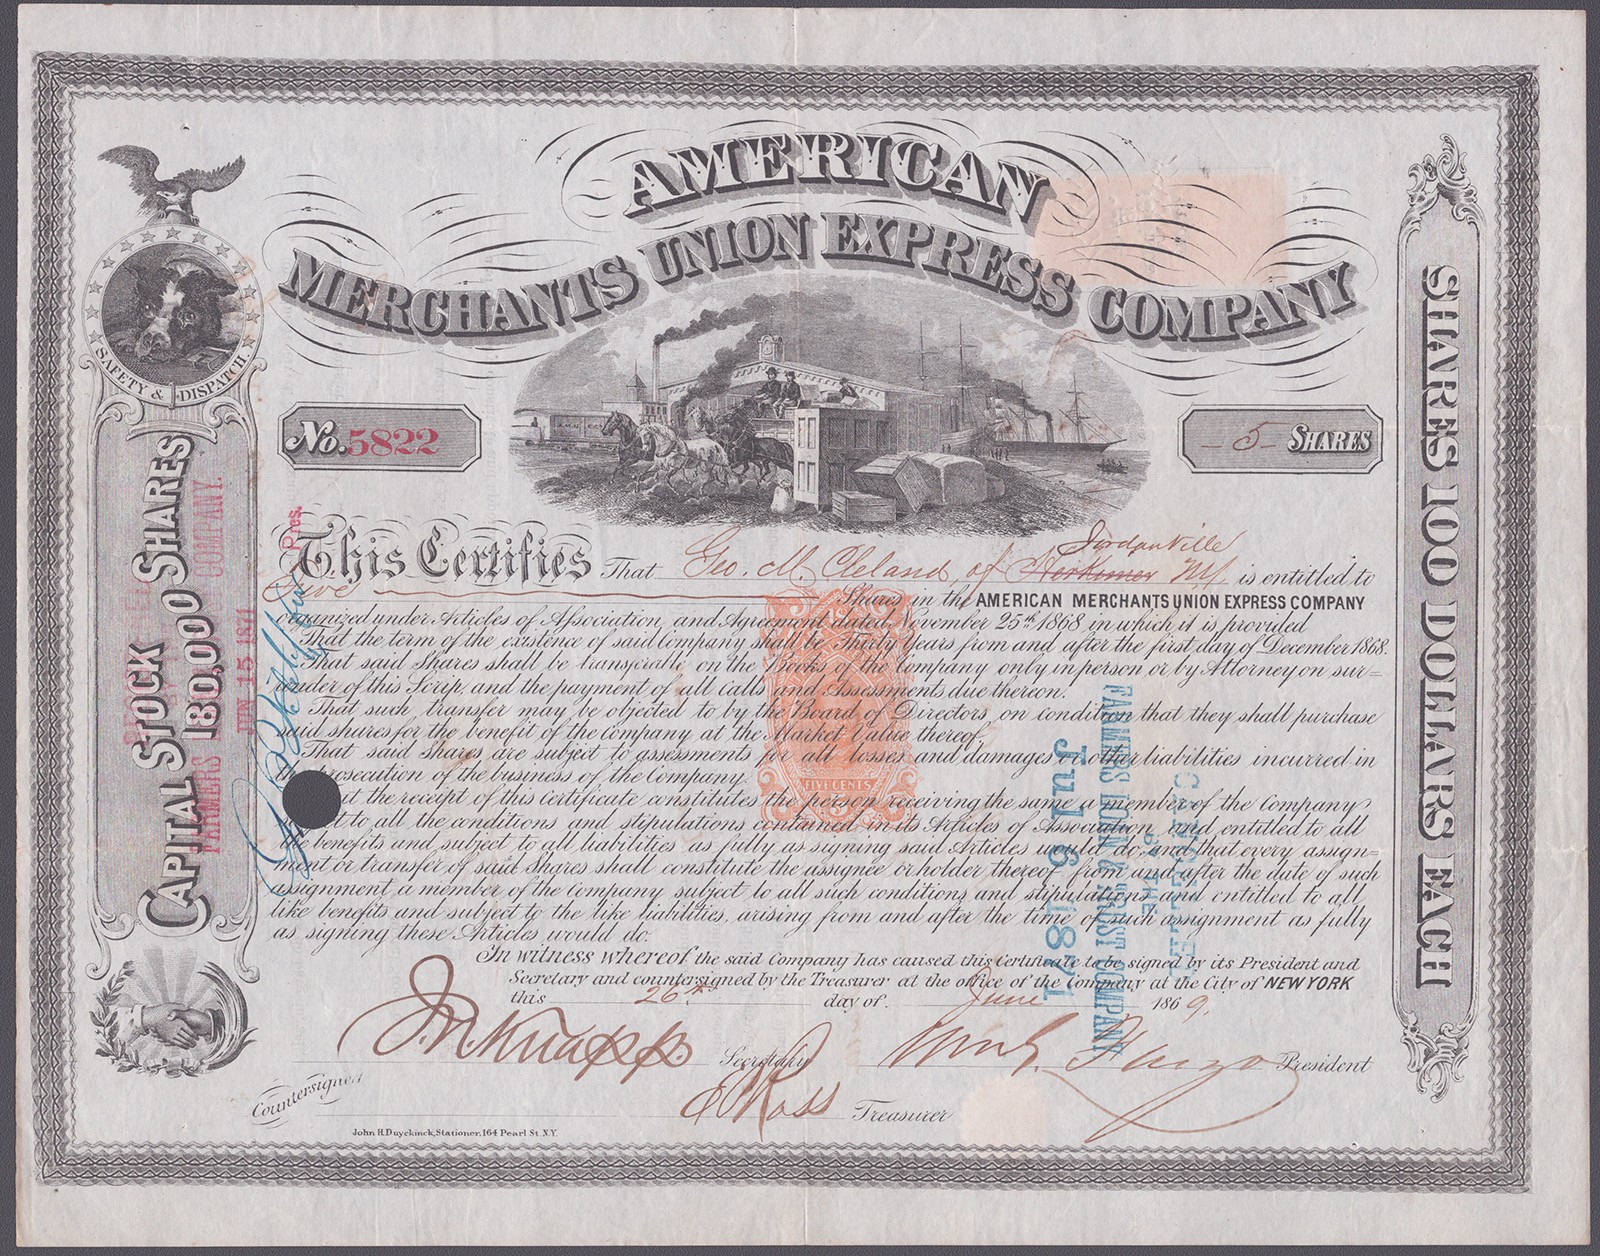 AMERICAN
MERCHANTS UNION EXPRESS COMPANY
SAFETY & DISPATCH.
No. 5822
- 5 - SHARES
CAPITAL STOCK 180,000 SHARES
SHARES 100 DOLLARS EACH
This Certifies That Geo. M. Cleland, of Herkimer Jordanville NY is entitled to
Five Shares in the AMERICAN MERCHANTS UNION EXPRESS COMPANY
organized under Articles of Association, and Agreement dated November 25th 1868 in which it is provided
That the term of the existence of said Company shall be Thirty Years from and after the first day of December 1868.
That said Shares shall be transferable on the Books of the Company only in person or by Attorney on sur=
render of this Scrip, and the payment of all Calls and Assessments due thereon.
That such transfer may be objected to by the Board of Directors, on condition that they shall purchase
said shares for the benefit of the Company at the Market Value thereof.
That said Shares are subject to assessments for all losses and damages or other liabilities incurred in
the prosecution of the business of the Company.
at the receipt of this Certificate constitutes the person receiving the same a member of the Company
to all the conditions and stipulations contained in its Articles of Association, and entitled to all
the benefits and subject to all liabilities as fully as signing said Articles would do, and that every assign=
ment or transfer of said Shares shall constitute the assignee or holder thereof from and after the date of such
assignment a member of the Company subject to all such conditions and stipulations and entitled to all
like benefits and subject to the like liabilities, arising from and after the time of such assignment as fully
as signing these Articles would do.
In witness whereof the said Company has caused this Certificate to be signed by its President and
Secretary and countersigned by the Treasurer at the office of the Company at the City of NEW YORK
this 26th day of June 1869.
J. N. Knapp Secretary
Wm. G. Fargo President
Countersigned
E Ross Treasurer
John H. Duyckinck, Stationer, 164 Pearl St. N.Y.
FIVE CENTS
Pres.
FARMERS COMPANY.
JUN 15 1871
CANCELLED
BY THE
FARMERS LOAN & TRUST COMPANY
Jul 6 1871